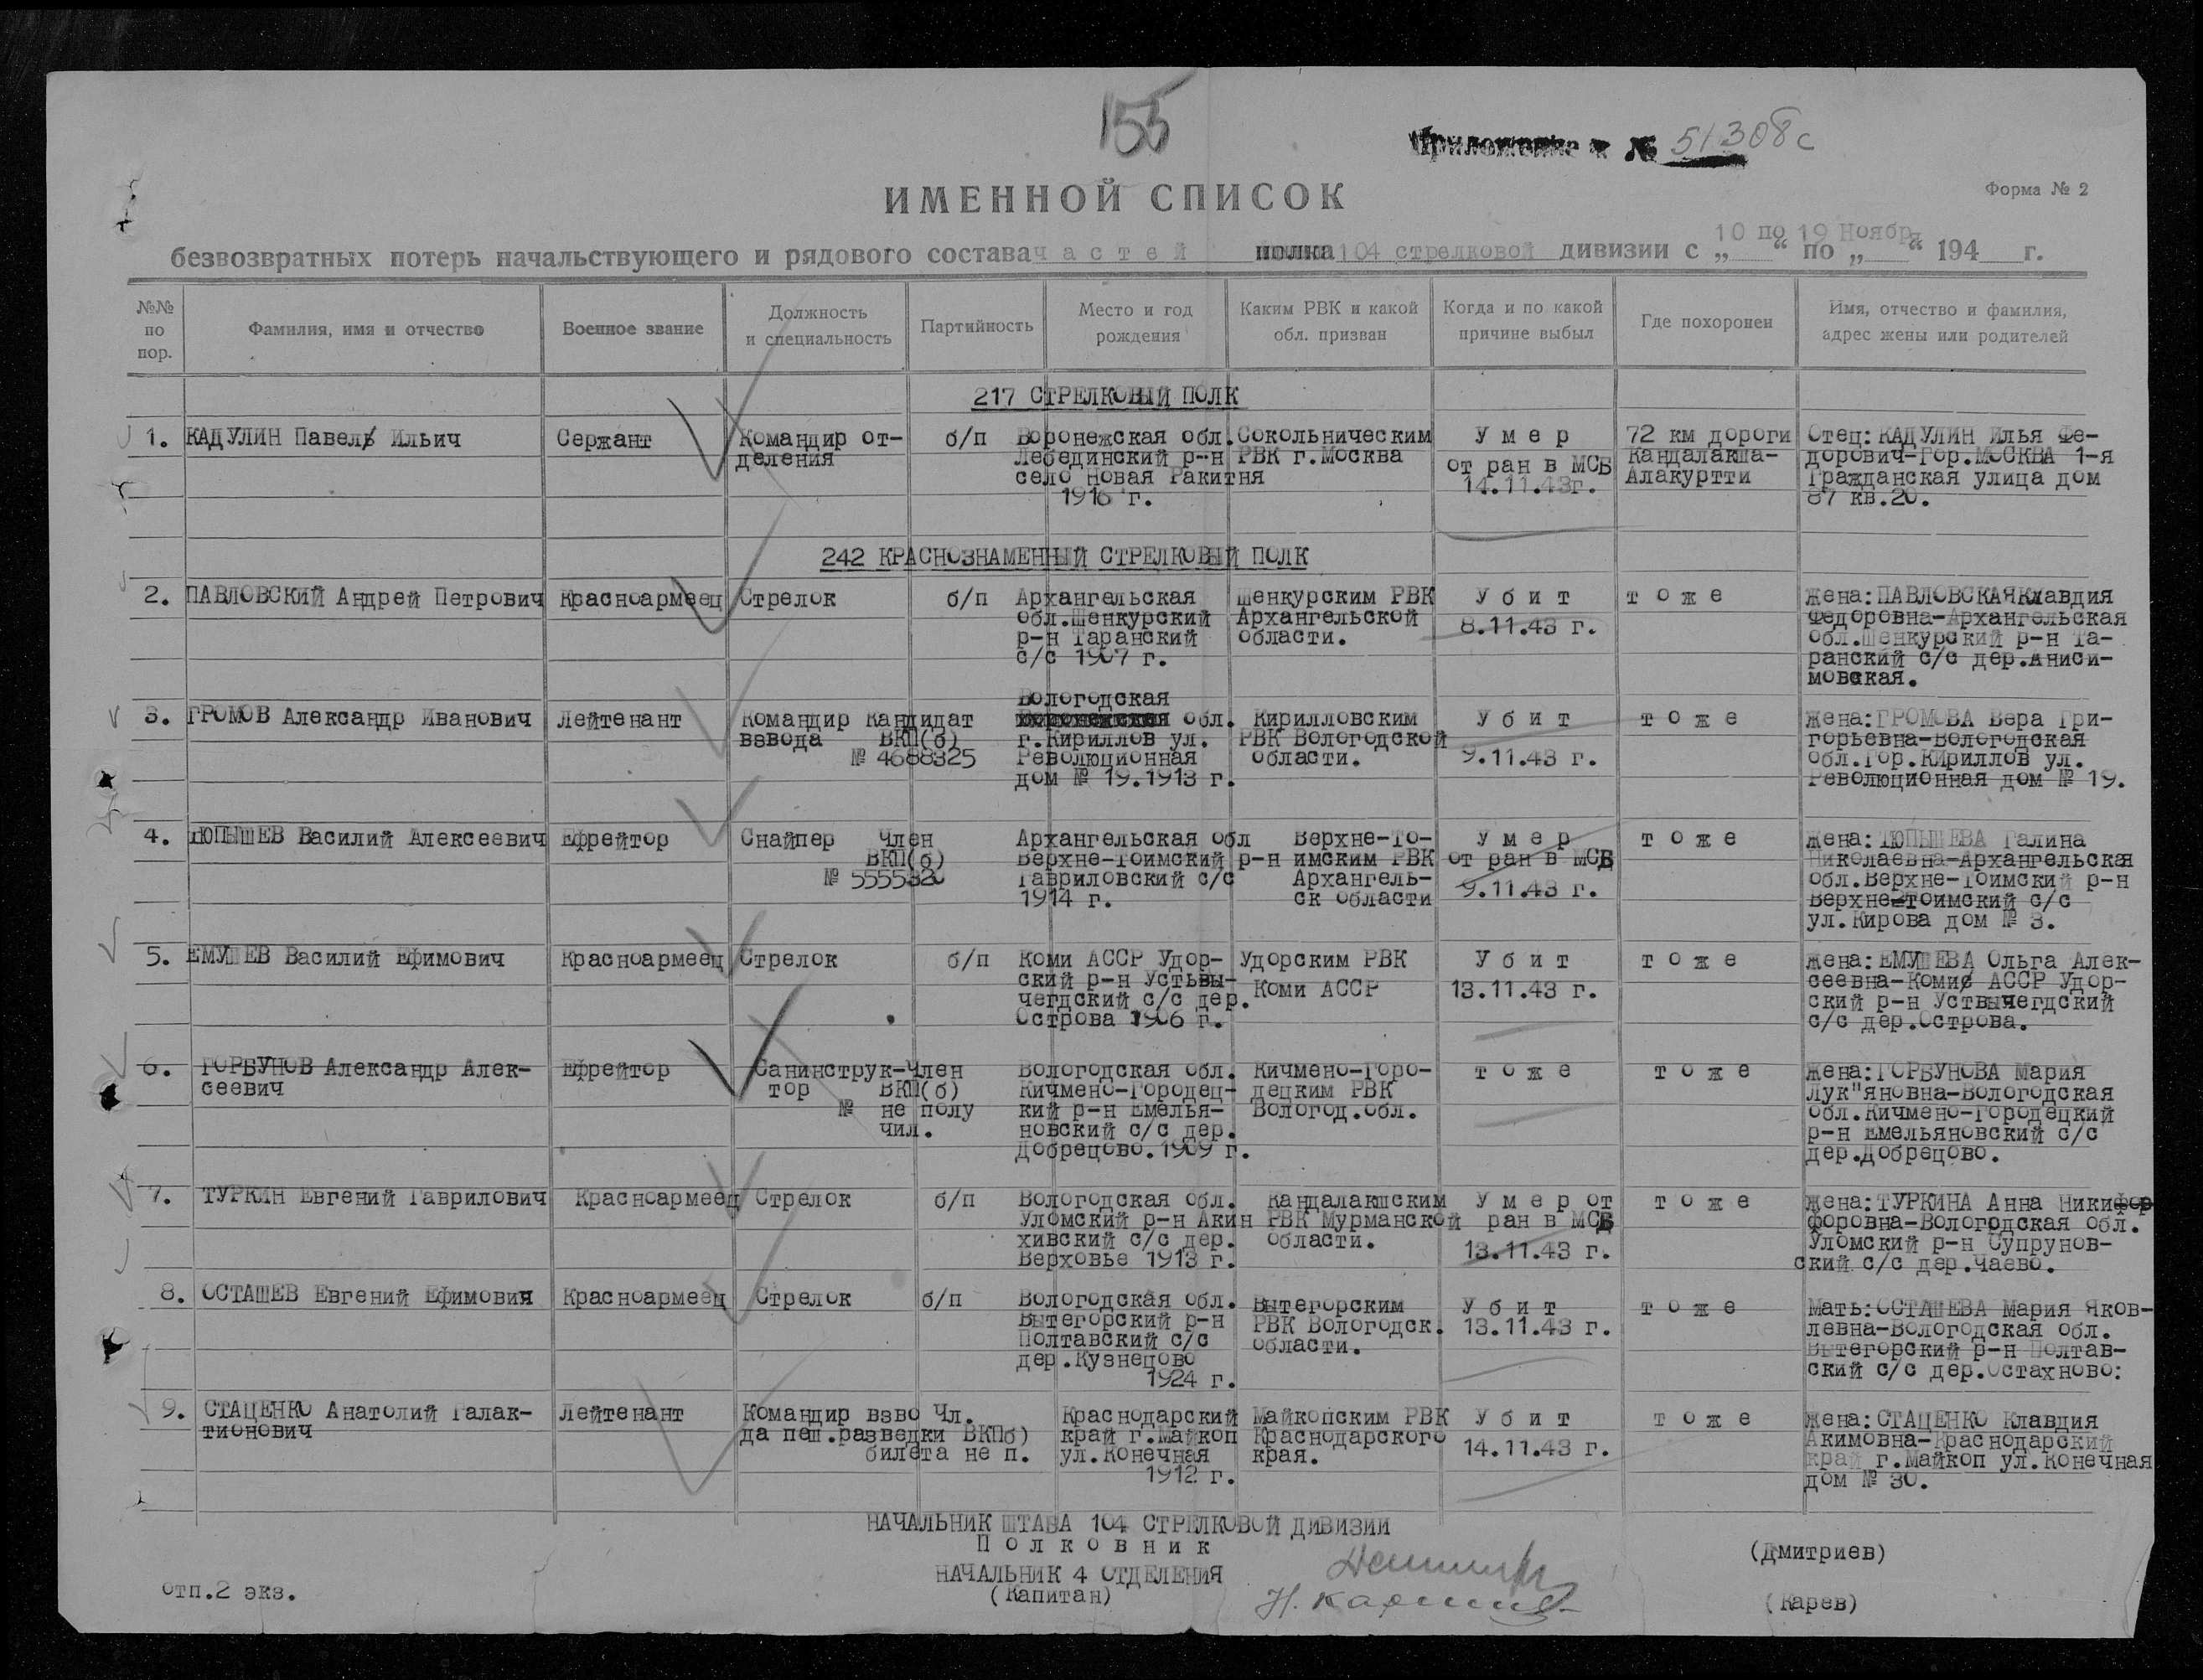 155
Приложение к № 51308с
ИМЕННОЙ СПИСОК
Форма № 2
безвозвратных потерь начальствующего и рядового состава частей полка 104 стрелковой дивизии с „10 по 19 Ноября“ по „ “ 194 г.
№№ по пор.
Фамилия, имя и отчество
Военное звание
Должность и специальность
Партийность
Место и год рождения
Каким РВК и какой обл. призван
Когда и по какой причине выбыл
Где похоронен
Имя, отчество и фамилия, адрес жены или родителей
217 СТРЕЛКОВЫЙ ПОЛК
1. КАДУЛИН Павел Ильич
Сержант
Командир от-
деления
б/п
Воронежская обл.
Лебединский р-н
село Новая Ракитня
1916 г.
Сокольническим
РВК г.Москва
Умер
от ран в МСБ
14.11.43г.
72 км дороги
Кандалакша-
Алакуртти
Отец:КАДУЛИН Илья Фе-
дорович-Гор.МОСКВА 1-я
Гражданская улица дом
87 кв.20.
242 КРАСНОЗНАМЕННЫЙ СТРЕЛКОВЫЙ ПОЛК
2. ПАВЛОВСКИЙ Андрей Петрович
Красноармеец
Стрелок
б/п
Архангельская
обл.Шенкурский
р-н Таранский
с/с 1907 г.
Шенкурским РВК
Архангельской
области.
Убит
8.11.43 г.
тоже
Жена:ПАВЛОВСКАЯ Клавдия
Федоровна-Архангельская
обл.Шенкурский р-н Та-
ранский с/с дер.Аниси-
мовская.
3. ГРОМОВ Александр Иванович
Лейтенант
Командир
взвода
Кандидат
ВКП(б)
№ 4688325
Вологодская
обл.
г.Кириллов ул.
Революционная
дом № 19.1913 г.
Кирилловским
РВК Вологодской
области.
Убит
9.11.43 г.
тоже
Жена:ГРОМОВА Вера Гри-
горьевна-Вологодская
обл.Гор.КИриллов ул.
Революционная дом № 19.
4. ТЮПЫШЕВ Василий Алексеевич
Ефрейтор
Снайпер
Член
ВКП(б)
№ 5555320
Архангельская обл
Верхне-Тоимский р-н
Гавриловский с/с
1914 г.
Верхне-То-
имским РВК
Архангель-
ск области
Умер
от ран в МСБ
9.11.43 г.
тоже
Жена:ТЮПЫШЕВА Галина
Николаевна-Архангельская
обл.Верхне-Тоимский р-н
Верхне-Тоимский с/с
ул.Кирова дом № 3.
5. ЕМУШЕВ Василий Ефимович
Красноармеец
Стрелок
б/п
Коми АССР Удор-
ский р-н Устьвы-
чегдский с/с дер.
Острова 1906 г.
Удорским РВК
Коми АССР
Убит
13.11.43 г.
тоже
Жена:ЕМУШЕВА Ольга Алек-
сеевна-Коми АССР Удор-
ский р-н Уствычегдский
с/с дер.Острова.
6. ГОРБУНОВ Александр Алек-
сеевич
Ефрейтор
Санинструк-
тор
Член
ВКП(б)
№ не полу
чил.
Вологодская обл.
Кичмено-Городец-
кий р-н Емелья-
новский с/с дер.
Добрецово.1909 г.
Кичмено-Горо-
децким РВК
Вологод.обл.
тоже
тоже
Жена:ГОРБУНОВА Мария
Лук"яновна-Вологодская
обл.Кичмено-Городецкий
р-н Емельяновский с/с
дер.Добрецово.
7. ТУРКИН Евгений Гаврилович
Красноармеец
Стрелок
б/п
Вологодская обл.
Уломский р-н Акин
хивский с/с дер.
Верховье 1913 г.
Кандалакшским
РВК Мурманской
области.
Умер от
ран в МСБ
13.11.43 г.
тоже
Жена:ТУРКИНА Анна Никифор
форовна-Вологодская обл.
Уломский р-н Супрунов-
ский с/с дер.Чаево.
8. ОСТАШЕВ Евгений Ефимовия
Красноармеец
Стрелок
б/п
Вологодская обл.
Вытегорский р-н
Полтавский с/с
дер.Кузнецово
1924 г.
Вытегорским
РВК Вологодск.
области.
Убит
13.11.43 г.
тоже
Мать:ОСТАШЕВА Мария Яков-
левна-Вологодская обл.
Вытегорский р-н Полтав-
ский с/с дер.Остахново:
9. СТАЦЕНКО Анатолий Галак-
тионович
Лейтенант
Командир взво
да пеш.разведки
Чл.
ВКПб)
билета не п.
Краснодарский
край г.Майкоп
ул.Конечная
1912 г.
Майкопским РВК
Краснодарского
края.
Убит
14.11.43 г.
тоже
Жена:СТАЦЕНКО Клавдия
Акимовна-Краснодарский
край г.Майкоп ул.Конечная
дом № 30.
НАЧАЛЬНИК ШТАБА 104 СТРЕЛКОВОЙ ДИВИЗИИ
Полковник
(Дмитриев)
НАЧАЛЬНИК 4 ОТДЕЛЕНИЯ
(Капитан)
(Карев)
отп.2 экз.